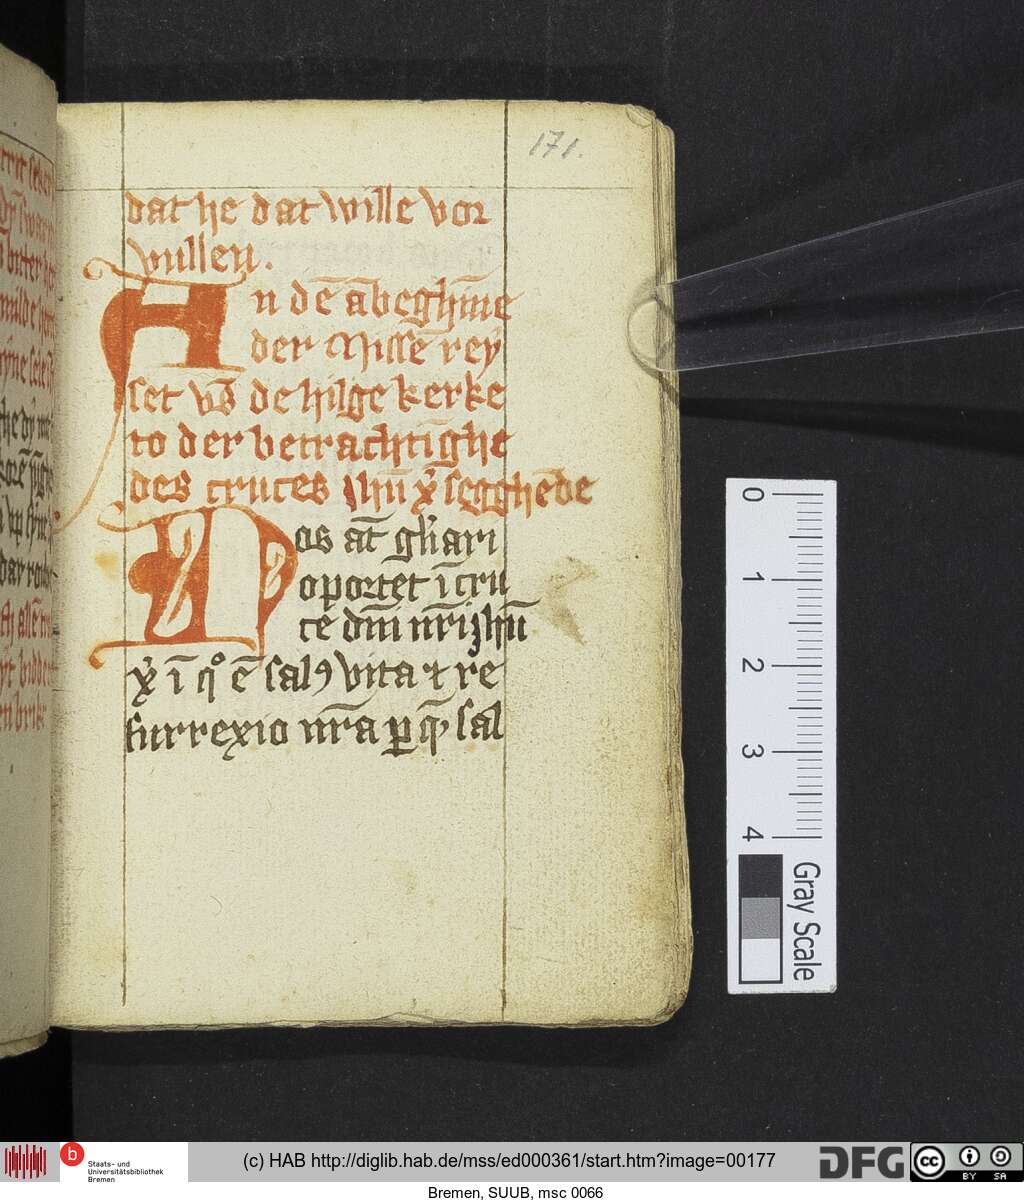 171.
dat he dat wille vor
vullen.
An dē ābeghīne
der Missē rey
set vs̄ de hilge kerke
to der betrachtīghe
des cruces ihū xp̄ segghēde
Nos at̄ gl'iari
oportet ī cru
ce dn̄i nr̄i ihū
xp̄ ī qͦ ē salꝰ vita ⁊ re
surrexio nr̄a ꝑ qȝ sal
0
1
2
3
4
Gray Scale
Staats- und
Universitätsbibliothek
Bremen
(c) HAB http://diglib.hab.de/mss/ed000361/start.htm?image=00177
DFG
cc BY SA
Bremen, SUUB, msc 0066